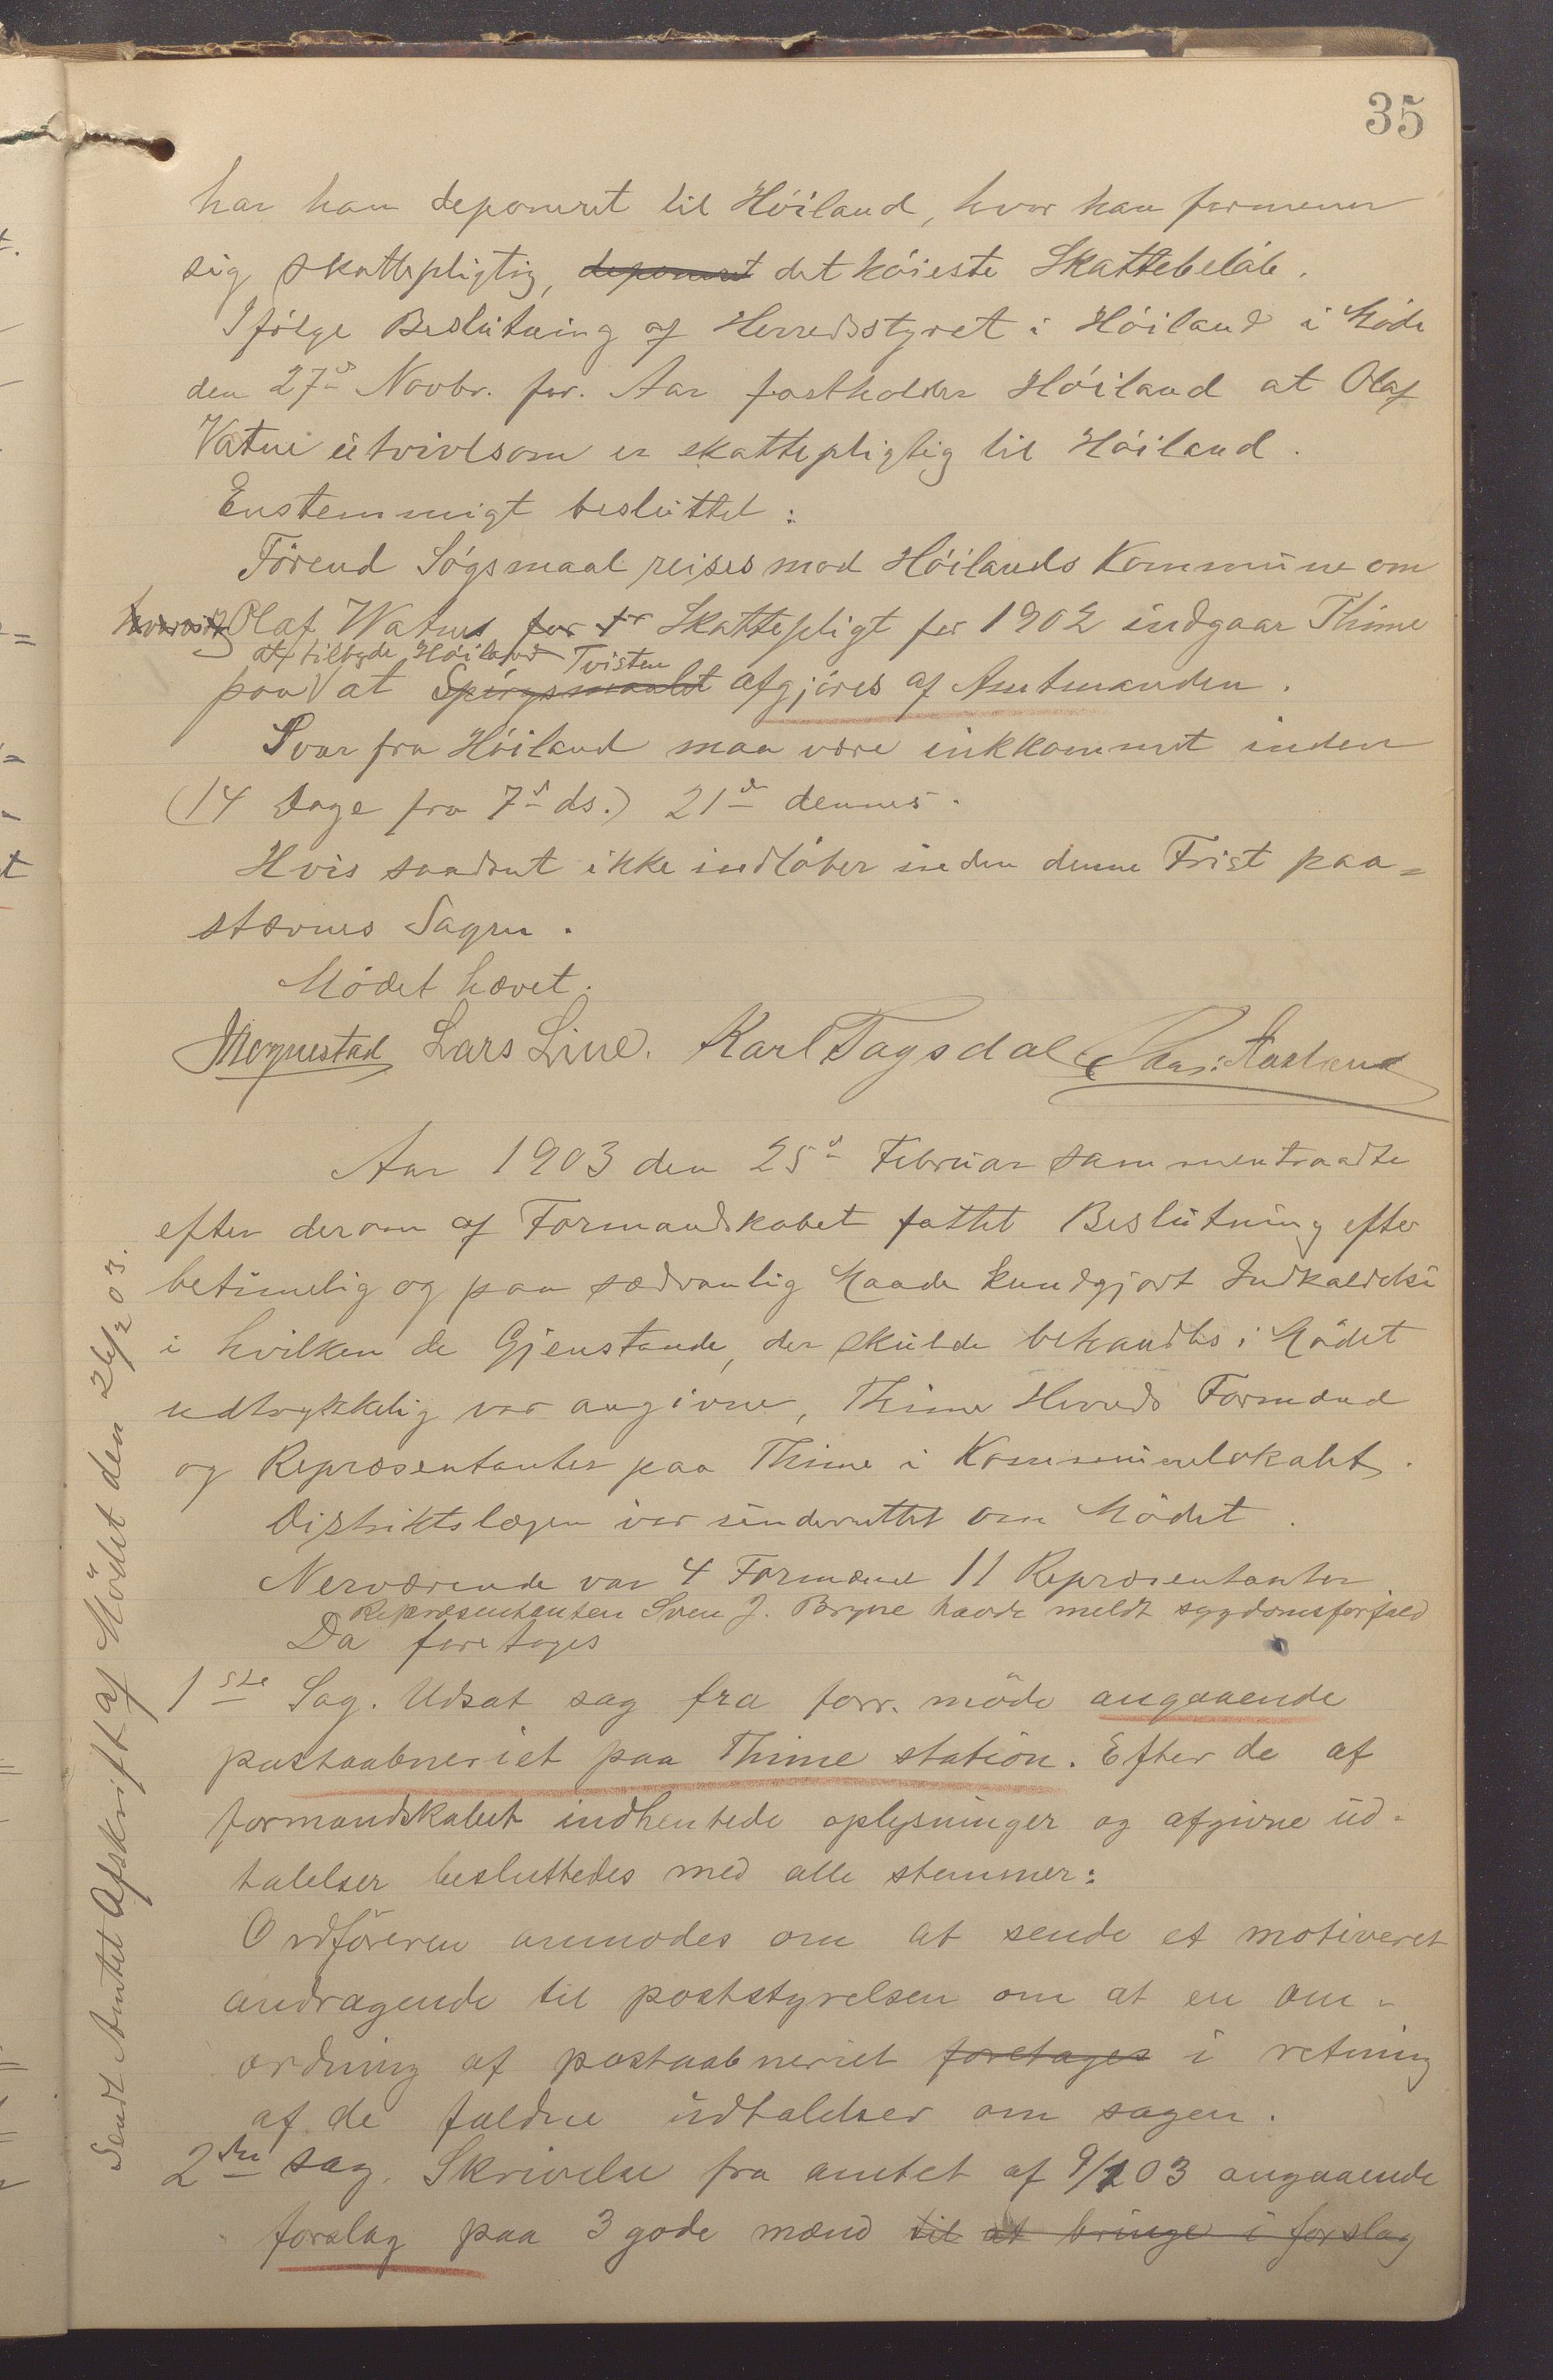 35
har han deponeret til Höiland, hvor han formener
sig skattepligtig, deponeret det höieste Skattebelöb.
Ifölge Beslutning af Herredsstyret i Höiland i Möde
den 27de Novbr. for. Aar fastholder Höiland at Olaf
Vatne utvivlsom er skattepligtig til Höiland.
Enstemmigt besluttet:
Förend Sögsmaal reises mod Höilands Kommune om
Olaf Watnes for Skattepligt for 1902 indgaar Thime
at tilbyde Höiland Tvisten
paa at Spörgsmaalet afgjöres af Amtmanden.
Svar fra Höiland maa være inkkommet inden
(14 Dage fra 7de ds.) 21de dennes.
Hvis saadant ikke indlöber inden denne Frist paa=
stævnes Sagen.
Mödet hævet.
Lars Line. Karl Tagsdal
Aar 1903 den 25de Februar sammentraadte
efter derom af Formandskabet fattet Beslutning efter
betimelig og paa sædvanlig Maade kundgjort Indkaldelse
i hvilken de Gjenstande, der skulde behandles i Mödet
udtrykkelig var angivne, Thime Herreds Formænd
og Repræsentanter paa Thime i Kommunelokalet.
Distriktslægen var underrettet om Mödet.
Nerværende var 4 Formænd 11 Repræsentanter
Repræsentanten Sven J. Bryne havde meldt sygdomsforfald
Da foretoges
1ste Sag. Udsat sag fra forr. möde angaaende
postaabneriet paa Thime station. Efter de af
formandskabet indhentede oplysninger og afgivne ud-
talelser besluttedes med alle stemmer:
Ordföreren anmodes om at sende et motiveret
andragende til poststyrelsen om at en om-
ordning af postaabneriet foretages i retning
af de faldne udtalelser om sagen.
2den sag. Skrivelse fra amtet af 9/2 03 angaaende
forslag paa 3 gode mænd til at bringe i forslag
Sendt Amtet Afskrift af Mödet den 26/2 03.